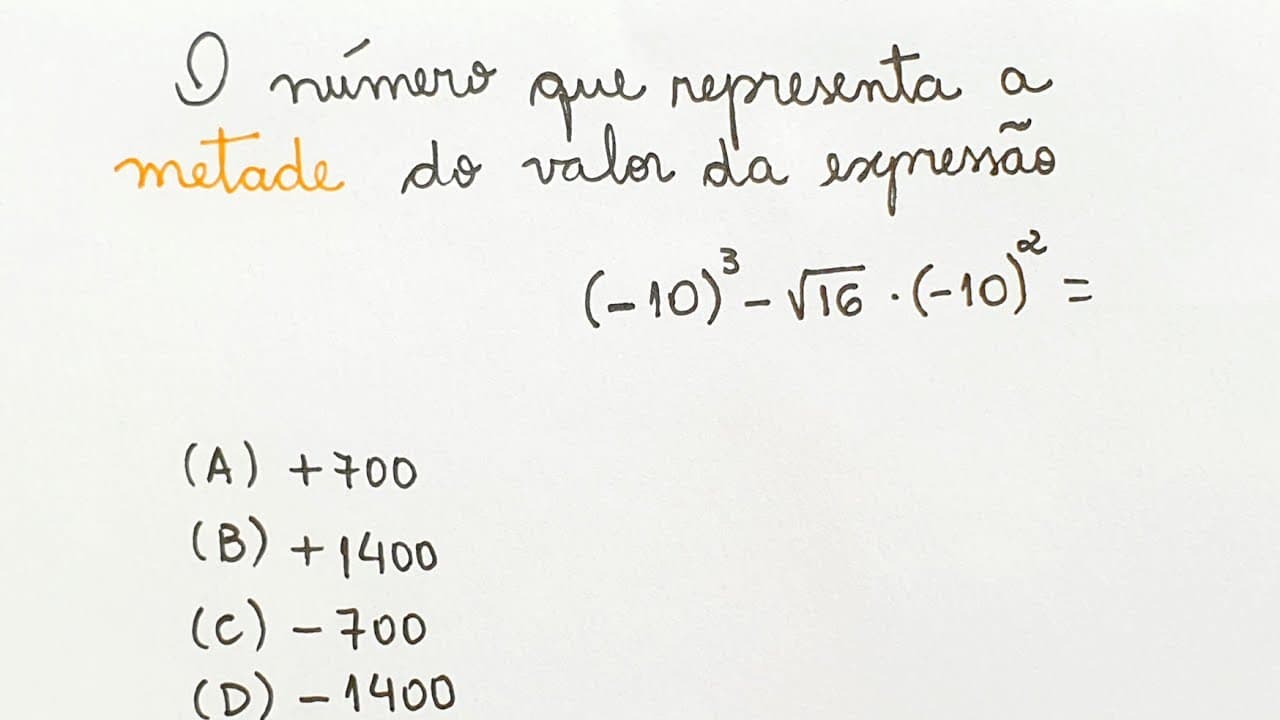 O número que representa a
metade do valor da expressão
(-10)³ - √16 . (-10)² =
(A) +700
(B) +1400
(C) -700
(D) -1400